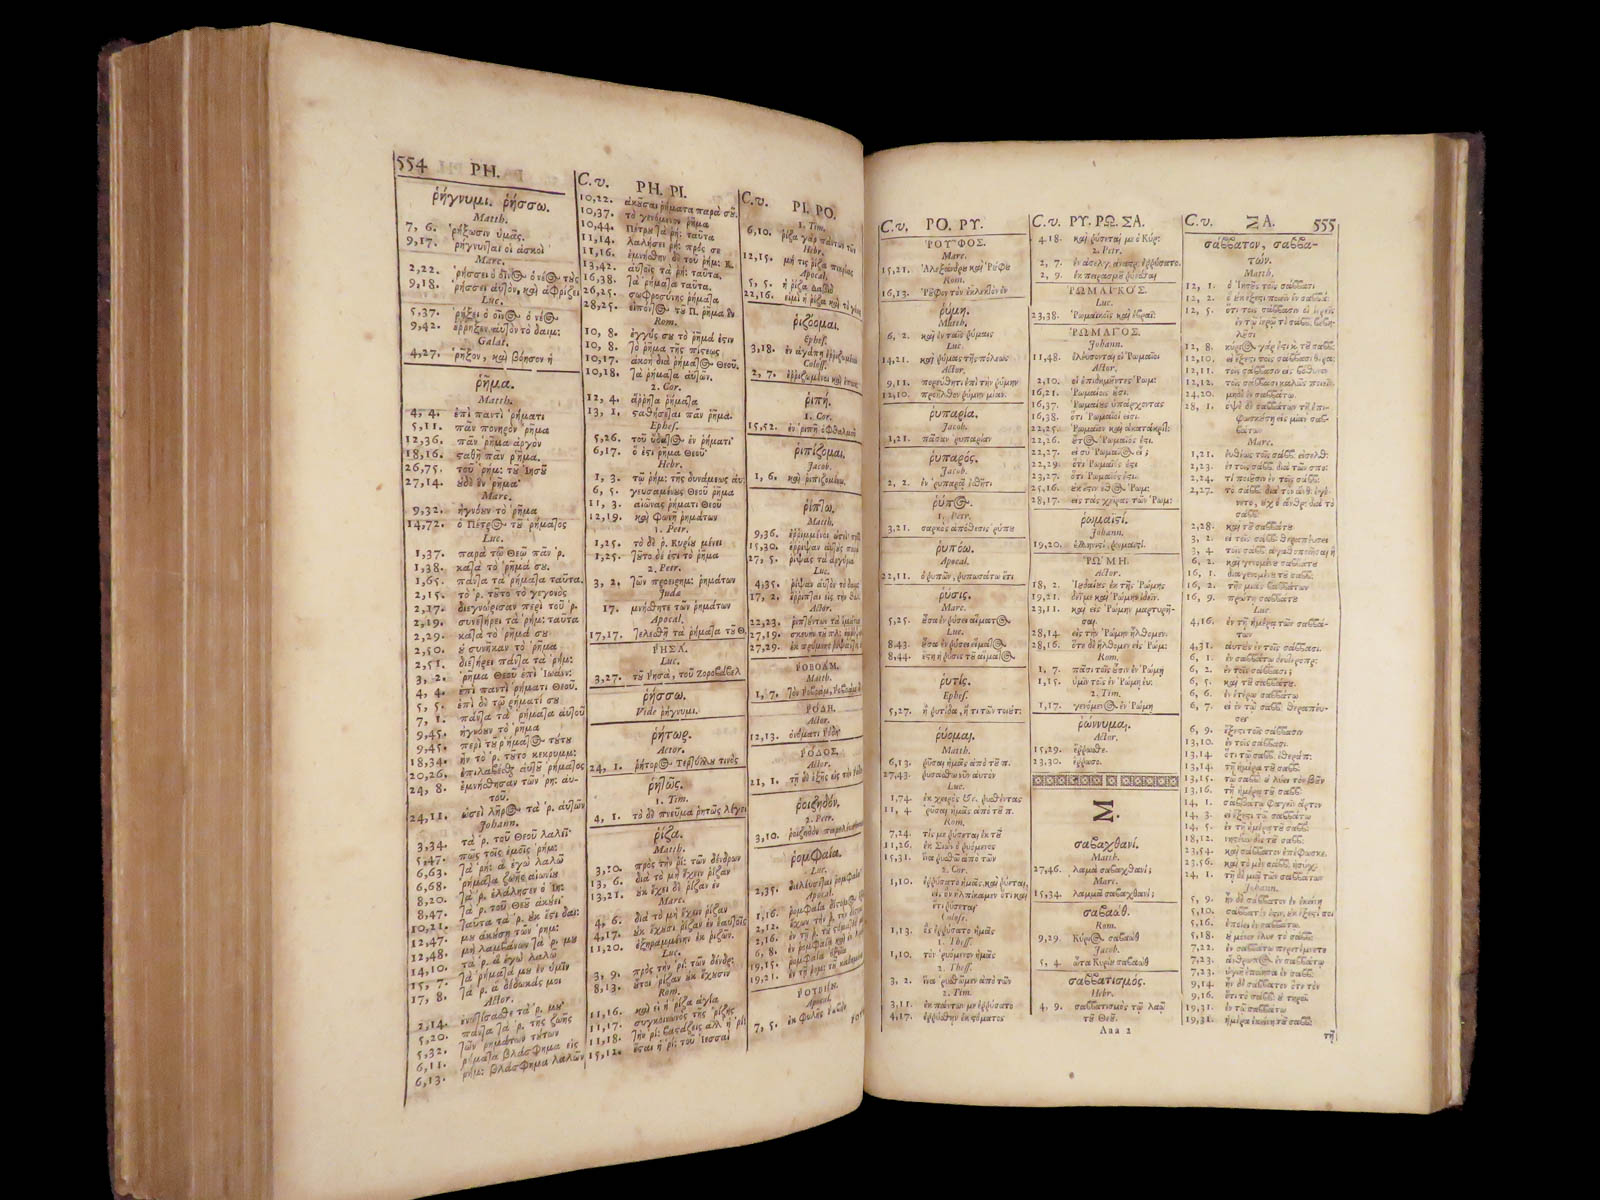 554 ΡΗ.
ῥήγνυμι. ῥήσσω.
Matth.
7, 6. ῥήξωσιν ὑμᾶς.
9,17. ῥήγνυνται οἱ ἀσκοὶ
Marc.
2,22. ῥήσσει ὁ οἶνος ὁ νέος τοὺς
9,18. ῥήσσει αὐτὸν, καὶ ἀφρίζει
Luc.
5,37. ῥήξει ὁ οἶνος ὁ νέος
9,42. ἔῤῥηξεν αὐτὸν τὸ δαιμ:
Galat.
4,27. ῥῆξον, καὶ βόησον ἡ
ῥῆμα.
Matth.
4, 4. ἐπὶ παντὶ ῥήματι
5,11. πᾶν πονηρὸν ῥῆμα
12,36. πᾶν ῥῆμα ἀργὸν
18,16. σταθῇ πᾶν ῥῆμα.
26,75. τοῦ ῥήμ: τοῦ Ἰησοῦ
27,14. οὐδὲ ἓν ῥῆμα
Marc.
9,32. ἠγνόουν τὸ ῥῆμα
14,72. ὁ Πέτρος τοῦ ῥήματος
Luc.
1,37. παρὰ τῷ Θεῷ πᾶν ῥ.
1,38. κατὰ τὸ ῥῆμά σου.
1,65. πάντα τὰ ῥήματα ταῦτα.
2,15. τὸ ῥ. τοῦτο τὸ γεγονὸς
2,17. διεγνώρισαν περὶ τοῦ ῥ.
2,19. συνετήρει τὰ ῥημ: ταῦτα
2,29. κατὰ τὸ ῥῆμά σου
2,50. οὐ συνῆκαν τὸ ῥῆμα
2,51. διετήρει πάντα τὰ ῥημ:
3, 2. ῥῆμα Θεοῦ ἐπὶ Ἰωάνν:
4, 4. ἐπὶ παντὶ ῥήματι Θεοῦ.
5, 5. ἐπὶ δὲ τῷ ῥήματί σου
7, 1. πάντα τὰ ῥήματα αὐτοῦ
9,45. ἠγνόουν τὸ ῥῆμα
9,45. περὶ τοῦ ῥήματος τούτου
18,34. ἦν τὸ ῥ. τοῦτο κεκρυμμ:
20,26. ἐπιλαβέσθαι αὐτοῦ ῥήματος
24, 8. ἐμνήσθησαν τῶν ῥη: αὐ-
τοῦ.
24,11. ὡσεὶ λῆρος τὰ ῥ. αὐτῶν
Johann.
3,34. τὰ ῥ. τοῦ Θεοῦ λαλεῖ
5,47. πῶς τοῖς ἐμοῖς ῥήμ:
6,63. τὰ ῥη: ἃ ἐγὼ λαλῶ
6,68. ῥήματα ζωῆς αἰωνίου
8,20. τὰ ῥ. ἐλάλησεν ὁ Ἰη:
8,47. τὰ ῥ. τοῦ Θεοῦ ἀκούει
10,21. ταῦτα τὰ ῥ. οὐκ ἔστι δαι:
12,47. μου ἀκούσῃ τῶν ῥημ:
12,48. μὴ λαμβάνων τὰ ῥ. μου
14,10. τὰ ῥ. ἃ ἐγὼ λαλῶ
15, 7. τὰ ῥήματά μου ἐν ὑμῖν
17, 8. τὰ ῥ. ἃ δέδωκάς μοι
Actor.
2,14. ἐνωτίσασθε τὰ ῥ. μου
5,20. πάντα τὰ ῥ. τῆς ζωῆς
5,32. τῶν ῥημάτων τούτων
6,11. ῥήματα βλάσφημα εἰς
6,13. ῥήμ: βλάσφημα λαλῶν
C. v. ΡΗ. ΡΙ.
10,22. ἀκοῦσαι ῥήματα παρὰ σοῦ.
10,37. τὸ γενόμενον ῥῆμα
10,44. Πέτρου τὰ ῥή: ταῦτα
11,14. λαλήσει ῥή: πρός σε
11,16. ἐμνήσθην δὲ τοῦ ῥήμ: Κ.
13,42. αὐτοῖς τὰ ῥή: ταῦτα.
16,38. τὰ ῥήματα ταῦτα.
26,25. σωφροσύνης ῥήματα
28,25. εἰπόντος τοῦ Π. ῥῆμα ἓν
Rom.
10, 8. ἐγγύς σου τὸ ῥῆμά ἐστιν
10, 8. τὸ ῥῆμα τῆς πίστεως
10,17. ἀκοὴ διὰ ῥήματος Θεοῦ.
10,18. τὰ ῥήματα αὐτῶν.
2. Cor.
12, 4. ἄῤῥητα ῥήματα
13, 1. σταθήσεται πᾶν ῥῆμα.
Ephes.
5,26. τοῦ ὕδατος ἐν ῥήματι
6,17. ὅ ἐστι ῥῆμα Θεοῦ
Hebr.
1, 3. τῷ ῥήμ: τῆς δυνάμεως αὑ.
6, 5. γευσαμένους Θεοῦ ῥῆμα
11, 3. αἰῶνας ῥήματι Θεοῦ
12,19. καὶ φωνῇ ῥημάτων
1. Petr.
1,25. τὸ δὲ ῥ. Κυρίου μένει
1,25. τοῦτο δέ ἐστι τὸ ῥῆμα
2. Petr.
3, 2. τῶν προειρημ: ῥημάτων
Judæ
17. μνήσθητε τῶν ῥημάτων
Apocal.
17,17. τελεσθῇ τὰ ῥήματα τοῦ Θ.
ῬΗΣΑ.
Luc.
3,27. τοῦ Ῥησὰ, τοῦ Ζοροβάβελ
ῥήσσω.
Vide ῥήγνυμι.
ῥήτωρ.
Actor.
24, 1. ῥήτορος Τερτύλλου τινὸς
ῥητῶς.
1. Tim.
4, 1. τὸ δὲ πνεῦμα ῥητῶς λέγει
ῥίζα.
Matth.
3,10. πρὸς τὴν ῥί: τῶν δένδρων
13, 6. διὰ τὸ μὴ ἔχειν ῥίζαν
13,21. οὐκ ἔχει δὲ ῥίζαν ἐν
Marc.
4, 6. διὰ τὸ μὴ ἔχειν ῥίζαν
4,17. οὐκ ἔχουσι ῥίζαν ἐν ἑαυτοῖς
11,20. ἐξηραμμένην ἐκ ῥιζῶν.
Luc.
3, 9. πρὸς τὴν ῥί: τῶν δένδρ:
8,13. οὗτοι ῥίζαν οὐκ ἔχουσιν
Rom.
11,16. καὶ εἰ ἡ ῥίζα ἁγία
11,17. συγκοινωνὸς τῆς ῥίζης
11,18. τὴν ῥί: βαστάζεις ἀλλ' ἡ ῥί:
15,12. ἔσται ἡ ῥί: τοῦ Ἰεσσαὶ
C. v. ΡΙ. ΡΟ.
1. Tim.
6,10. ῥίζα γὰρ πάντων τῶν
Hebr.
12,15. μή τις ῥίζα πικρίας
Apocal.
5, 5. ἡ ῥίζα Δαβὶδ
22,16. εἰμὶ ἡ ῥίζα καὶ τὸ γένος
ῥιζόομαι.
Ephes.
3,18. ἐν ἀγάπῃ ἐῤῥιζωμένοι
Coloss.
2, 7. ἐῤῥιζωμένοι καὶ ἐποικ:
ῥιπή.
1. Cor.
15,52. ἐν ῥιπῇ ὀφθαλμοῦ
ῥιπίζομαι.
Jacob.
1, 6. καὶ ῥιπιζομένῳ.
ῥίπτω.
Matth.
9,36. ἐῤῥιμμένοι ὡσεὶ
15,30. ἔῤῥιψαν αὐτοὺς παρὰ
27, 5. ῥίψας τὰ ἀργύρια
Luc.
4,35. ῥίψαν αὐτὸν τὸ δαιμ:
17, 2. ἔῤῥιπται εἰς τὴν θάλ.
Actor.
22,23. ῥιπτόντων τὰ ἱμάτια
27,19. σκευὴν τοῦ πλ:
27,29. ἐκ πρύμνης ῥίψαντες
ῬΟΒΟΑΜ.
Matth.
1, 7. τὸν Ῥοβοάμ, Ῥοβοὰμ
ῬΟΔΗ.
Actor.
12,13. ὀνόματι Ῥόδη
ῬΟΔΟΣ.
Actor.
21, 1. τῇ δὲ ἑξῆς εἰς τὴν Ῥόδον
ῥοιζηδόν.
2. Petr.
3,10. ῥοιζηδὸν παρελεύσονται
ῥομφαία.
Luc.
2,35. διελεύσεται ῥομφαία
Apocal.
1,16. ῥομφαία δίστομος
2,12. ἔχων τὴν ῥ. τὴν δίστ.
2,16. ἐν τῇ ῥ. τοῦ στόματος
6, 8. ἐν ῥομφαίᾳ καὶ ἐν
19,15. ῥομφαία ὀξεῖα
19,21. ἐν τῇ ῥομ: τοῦ καθημένου
ῬΟΥΒΗΝ.
Apocal.
7, 5. ἐκ φυλῆς Ῥουβὴν
C. v. ΡΟ. ΡΥ.
ῬΟΥΦΟΣ.
Marc.
15,21. Ἀλεξάνδρου καὶ Ῥούφου
Rom.
16,13. Ῥοῦφον τὸν ἐκλεκτὸν ἐν
ῥύμη.
Matth.
6, 2. καὶ ἐν ταῖς ῥύμαις
Luc.
14,21. καὶ ῥύμας τῆς πόλεως
Actor.
9,11. πορεύθητι ἐπὶ τὴν ῥύμην
12,10. προῆλθον ῥύμην μίαν:
ῥυπαρία.
Jacob.
1,21. πᾶσαν ῥυπαρίαν
ῥυπαρός.
Jacob.
2, 2. ἐν ῥυπαρᾷ ἐσθῆτι
ῥύπος.
1. Petr.
3,21. σαρκὸς ἀπόθεσις ῥύπου
ῥυπόω.
Apocal.
22,11. ὁ ῥυπῶν, ῥυπωσάτω ἔτι
ῥύσις.
Marc.
5,25. οὖσα ἐν ῥύσει αἵματος
Luc.
8,43. οὖσα ἐν ῥύσει αἵματος
8,44. ἔστη ἡ ῥύσις τοῦ αἵματος
ῥυτίς.
Ephes.
5,27. ἢ ῥυτίδα, ἤ τι τῶν τοιούτ:
ῥύομαι.
Matth.
6,13. ῥῦσαι ἡμᾶς ἀπὸ τοῦ π.
27,43. ῥυσάσθω νῦν αὐτὸν
Luc.
1,74. ἐκ χειρὸς &c. ῥυσθέντας
11, 4. ῥῦσαι ἡμᾶς ἀπὸ τοῦ π.
Rom.
7,24. τίς με ῥύσεται ἐκ τοῦ
11,26. ἐκ Σιὼν ὁ ῥυόμενος
15,31. ἵνα ῥυσθῶ ἀπὸ τῶν
2. Cor.
1,10. ἐῤῥύσατο ἡμᾶς καὶ ῥύεται,
εἰς ὃν ἠλπίκαμεν ὅτι καὶ
ἔτι ῥύσεται
Coloss.
1,13. ὃς ἐῤῥύσατο ἡμᾶς
1. Thess.
1,10. τὸν ῥυόμενον ἡμᾶς
2. Thess.
3, 2. ἵνα ῥυσθῶμεν ἀπὸ τῶν
2. Tim.
3,11. ἐκ πάντων με ἐῤῥύσατο
4,17. ἐῤῥύσθην ἐκ στόματος
C. v. ΡΥ. ΡΩ. ΣΑ.
4.18. καὶ ῥύσεταί με ὁ Κύρ:
2. Petr.
2, 7. ἐν ἀσελγ: ἀναστρ: ἐῤῥύσατο.
2, 9. ἐκ πειρασμοῦ ῥύεσθαι
ῬΩΜΑΙΚΟΣ.
Luc.
23,38. Ῥωμαϊκοῖς καὶ ἑβραϊ:
ῬΩΜΑΙΟΣ.
Johann.
11,48. ἐλεύσονται οἱ Ῥωμαῖοι
Actor.
2,10. οἱ ἐπιδημοῦντες Ῥωμ:
16,21. Ῥωμαίοις οὖσι.
16,37. Ῥωμαίους ὑπάρχοντας
16,38. ὅτι Ῥωμαῖοί εἰσι.
22,25. Ῥωμαῖον καὶ ἀκατάκριτ:
22,26. οὗτος Ῥωμαῖός ἐστι.
22,27. εἰ σὺ Ῥωμαῖος εἶ;
22,29. ὅτι Ῥωμαῖός ἐστι
23,27. ὅτι Ῥωμαῖός ἐστι.
25,16. οὐκ ἔστιν ἔθος Ῥωμ:
28,17. εἰς τὰς χεῖρας τῶν Ῥωμ:
ῥωμαϊστί.
Johann.
19,20. ἑλληνιστὶ ῥωμαϊστί.
ῬΩΜΗ.
Actor.
18, 2. Ἰουδαίους ἐκ τῆς Ῥώμης
19,21. δεῖ με καὶ Ῥώμην ἰδεῖν.
23,11. καὶ εἰς Ῥώμην μαρτυρῆ-
σαι
28,14. εἰς τὴν Ῥώμην ἤλθομεν.
28,16. ὅτε δὲ ἤλθομεν εἰς Ῥώμ:
Rom.
1, 7. πᾶσι τοῖς οὖσιν ἐν Ῥώμῃ
1,15. ὑμῖν τοῖς ἐν Ῥώμῃ εὐ.
2. Tim.
1,17. γενόμενος ἐν Ῥώμῃ
ῥώννυμαι.
Actor.
15,29. ἔῤῥωσθε.
23,30. ἔῤῥωσο.
Σ.
σαβαχθανί.
Matth.
27,46. λαμὰ σαβαχθανί;
Marc.
15,34. λαμμᾶ σαβαχθανί;
σαβαώθ.
Rom.
9,29. Κύριος σαβαὼθ
Jacob.
5, 4. ὦτα Κυρίου σαβαὼθ
σαββατισμός.
Hebr.
4, 9. σαββατισμὸς τῷ λαῷ
τοῦ Θεοῦ.
Aaa 2
C. v. ΣΑ. 555
σάββατον, σαββά-
των.
Matth.
12, 1. ὁ Ἰησοῦς τοῖς σάββασι
12, 2. ὃ οὐκ ἔξεστι ποιεῖν ἐν σαββά:
12, 5. ὅτι τοῖς σάββασιν οἱ ἱερεῖς
ἐν τῷ ἱερῷ τὸ σάββ. βεβη-
λοῦσι
12, 8. κύριος γάρ ἐστι κ. τοῦ σαββ:
12,10. εἰ ἔξεστι τοῖς σάββασι θερα:
12,11. τοῖς σάββασιν εἰς βόθυνον
12,12. τοῖς σάββασι καλῶς ποιεῖν.
24,20. μηδὲ ἐν σαββάτῳ.
28, 1. ὀψὲ δὲ σαββάτων τῇ ἐπι-
φωσκούσῃ εἰς μίαν σαβ-
βάτων
Marc.
1,21. εὐθέως τοῖς σάββ. εἰσελθ:
1,23. ἐν τοῖς σάββ. διὰ τῶν σπο:
2,24. τί ποιοῦσιν ἐν τοῖς σάββ:
2,27. τὸ σάββ. διὰ τὸν ἄνθ: ἐγέ-
νετο, οὐχ ὁ ἄνθρ: διὰ τὸ
σάββ:
2,28. καὶ τοῦ σαββάτου
3, 2. εἰ τοῖς σάββ. θεραπεύσει
3, 4. τοῖς σάββ. ἀγαθοποιῆσαι ἢ
6, 2. καὶ γενομένου σαββάτου
16, 1. διαγενομένου τοῦ σαββ:
16, 2. τῆς μιᾶς σαββάτων
16, 9. πρώτῃ σαββάτου
Luc.
4,16. ἐν τῇ ἡμέρᾳ τῶν σαββά-
των
4,31. αὐτοὺς ἐν τοῖς σάββασι.
6, 1. ἐν σαββάτῳ δευτεροπρ:
6, 2. ἐν τοῖς σάββασι;
6, 5. καὶ τοῦ σαββάτου.
6, 6. ἐν ἑτέρῳ σαββάτῳ
6, 7. εἰ ἐν τῷ σάββ. θεραπεύ-
σει
6, 9. ἔξεστι τοῖς σάββασιν
13,10. ἐν τοῖς σάββασι.
13,14. ὅτι τῷ σάββ. ἐθεράπ:
13,14. τῇ ἡμέρᾳ τοῦ σαββ.
13,15. τῷ σαββ. οὐ λύει τὸν βοῦν
13,16. τῇ ἡμέρᾳ τοῦ σαββ:
14, 1. σαββάτῳ φαγεῖν ἄρτον
14, 3. εἰ ἔξεστι τῷ σαββάτῳ
14, 5. ἐν τῇ ἡμέρᾳ τοῦ σαββ:
18,12. νηστεύω δὶς τοῦ σαββ:
23,54. καὶ σάββατον ἐπέφωσκε.
23,56. καὶ τὸ μὲν σάββ. ἡσύχ:
24, 1. τῇ δὲ μιᾷ τῶν σαββάτων
Johann.
5, 9. ἦν δὲ σάββατον ἐν ἐκείνῃ
5,10. σάββατόν ἐστιν, οὐκ ἔξεστί σοι
5,16. ἐποίει ἐν σαββάτῳ.
5,18. οὐ μόνον ἔλυε τὸ σαββ:
7,22. ἐν σαββάτῳ περιτέμνετε
7,23. ἄνθρωπος ἐν σαββάτῳ
7,23. ὑγιῆ ἐποίησα ἐν σαββ:
9,14. ἦν δὲ σάββατον ὅτε τὸν
9,16. ὅτι τὸ σάββ. οὐ τηρεῖ.
19,31. ἐν τῷ σαββάτῳ
19,31. ἡμέρα ἐκείνη τοῦ σαββ:
τῇ